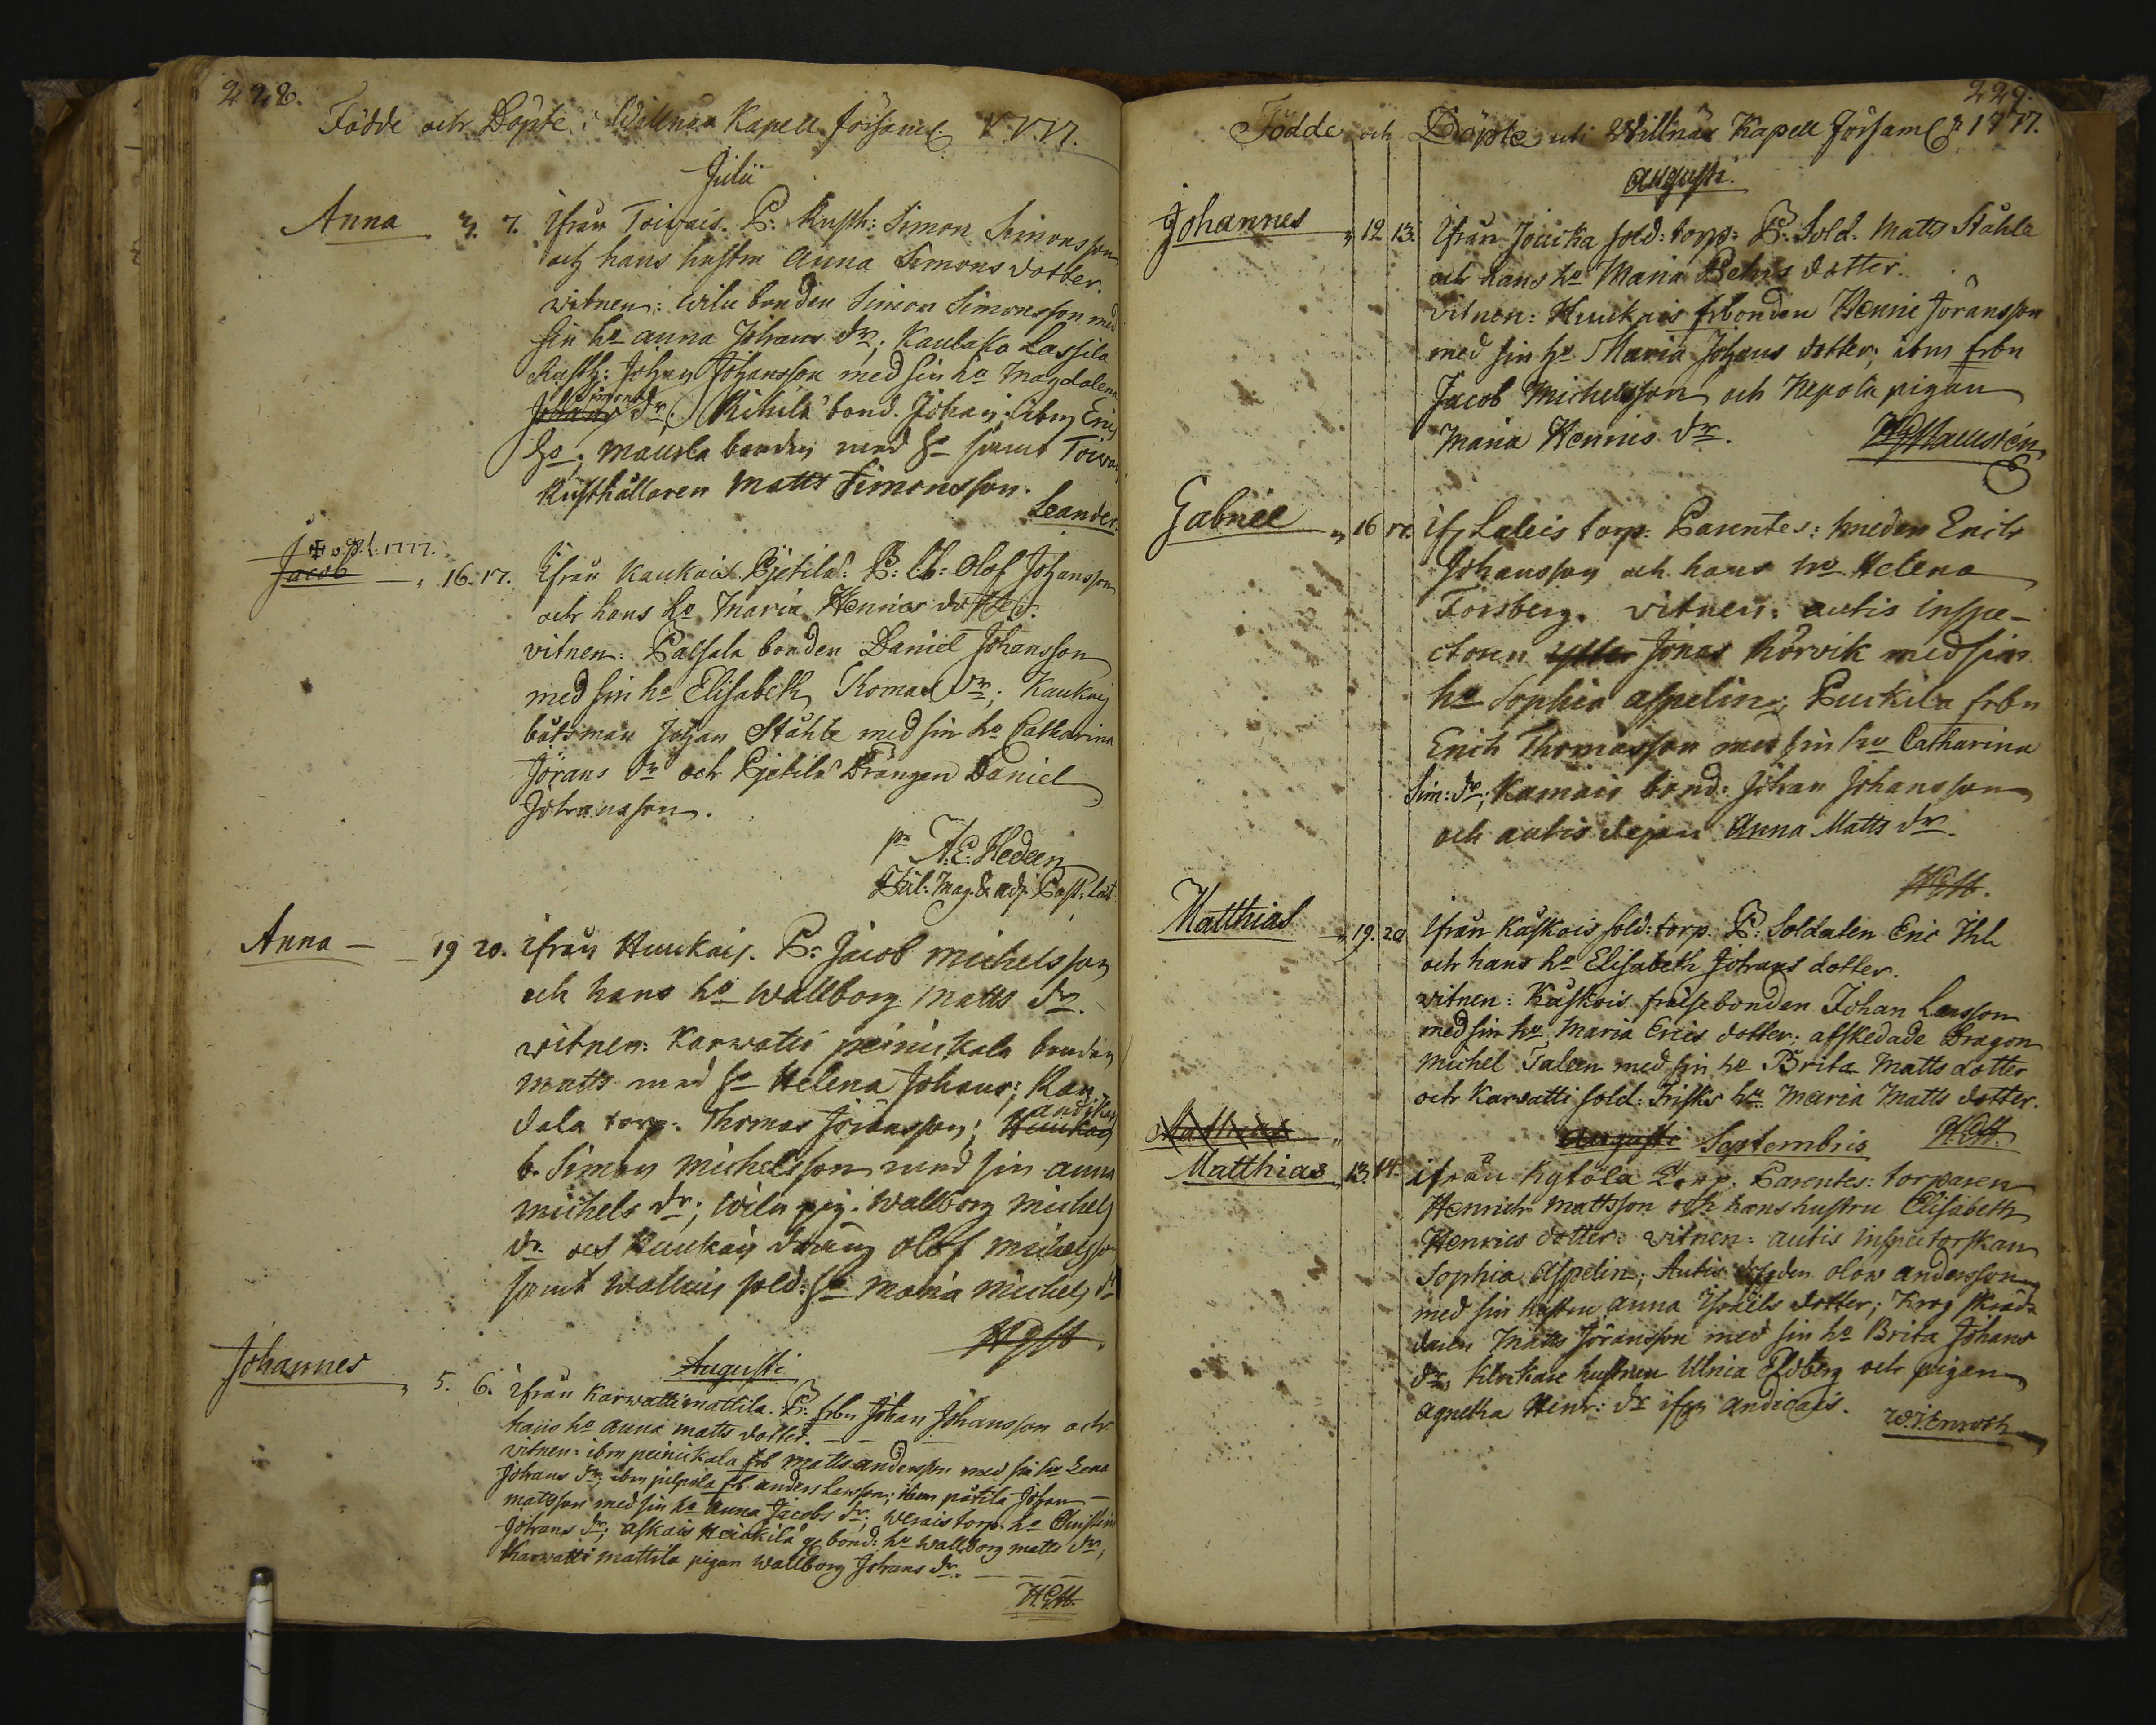 228.
Födde och Döpte i Willnäs Kapell Församl. 1777.
Julii
Anna 3. 7. ifrån Toivais. P: Rusth: Simon Simonsson
och hans hustru Anna Simons dotter.
witnen: wilu bonden Simon Simonsson med
sin ho Anna Johans dr; Kaulako Lassila
Rusth: Johan Johansson med sin ho Magdalena
Simons
Johans dr; Rihila bond. Johan; ibm Eric
ho; Maunla bonden med ho samt Toivais
Rusthållaren Matts Simonsson.
Leander.
✠ o. J. 1777.
Jacob 16. 17. ifrån Kaukais Pjetilä: P: Lb: Olof Johansson
och hans ho Maria Hennics dotter.
vitnen: Palsala bonden Daniel Johansson
med sin ho Elisabeth Thomas dr; Kaukais
båtsman Johan Ståhle med sin ho Catharina
Jörans dr och Pjetilä Drängen Daniel
Johansson.
pr A. E: Hedeen
Phil: Mag. & adj: Past: Lät
Anna 19 20. ifrån Huukais. P: Jacob Michelsson
och hans ho Wallborg Matts dr.
witnen: Karwatti peiniskala bonden
Matts med ho Helena Johans; Kan
dala torp. Thomas Jöransson; Huukais
andikais
b. Simon Michelsson med sin Anna
Michels dr; Wilu pig. Wallborg Michels
dr och Huukais dräng Olof Michelsson
samt Wallais sold: ho Maria Michels dr
Augusti
Johannes 5. 6. ifrån Karwatti mattila. P: frbn Johan Johansson och
hans ho Anna Matts dotter.
vitnen: ibm peiniskala frb Matts Andersson med sin ho Lena
Johans dr; ibm pilpola frb. Anders Larsson; item pätila Johan
Matsson med sin ho Anna Jacobs dr; Werais torp. ho Christina
Johans dr; Askais Heickilä g. bond: ho Wallborg Matts dr;
Karwatti mattila pigan Wallborg Johans dr.
229.
Födde och Döpte uti Willnäs Kapell Församl. 1777.
Augusti.
Johannes 12 13. ifrån Joucka sold: torp: P: Sold. Matts Ståhle
och hans ho Maria Pehrs dotter.
vitnen: Huukais frbonden Hennic Jöransson
med sin ho Maria Johans dotter; ibm frbn
Jacob Michelsson och Nepola pigan
Maria Hennics dr.
Gabriel 16 17. if Laleis torp: Parentes: smeden Erich
Johansson och hans ho Helena
Forsberg. vitnen: autis inspe-
ctoren Jonas Körvik med sin
ho Sophia Aspelin; Puckila frbn
Erich Thomasson med sin ho Catharina
Sim: dr; Kamais bond: Johan Johansson
och autis dejan Anna Matts dr.
Matthias 19. 20 ifrån Kåskois sold: torp. P: Soldaten Eric Ihl
och hans ho Elisabeth Johans dotter.
vitnen: Kåskois frälsebonden Johan Larsson
med sin ho Maria Erics dotter; afskedade Dragon
Michel Taleen med sin ho Brita Matts dotter
och Karvatti sold: Frisks ho Maria Matts dotter.
Matthias
Augusti Septembris
Matthias 13. 14. ifrån Kytöla Torp. Parentes: torparen
Henrich Mattsson och hans hustru Elisabeth
Henrics dotter: vitnen: autis inspectorskan
Sophia Aspelin; Autis Olow Andersson
med sin hustru Anna Michels dotter; Krog skräd-
daren Matts Jöransson med sin ho Brita Johans
dr; Klockare hustrun Ulrica Eldberg och pigan
Agnetha Henr: dr ifrån Andicais.